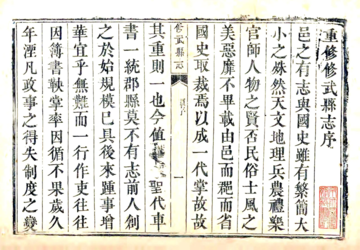 重修修武縣志序
邑之有志與國史雖有繁簡大
小之殊然天文地理兵農禮樂
官師人物之賢否民俗士風之
美惡靡不畢載由邑而郡而省
國史取裁焉以成一代掌故故
修武縣志
一
其重則一也今値 聖代車
書一統郡縣莫不有志前人創
之於始規模已具後來踵事增
華宜乎無難而一行作吏往往
因簿書鞅掌率因循不果歲久
年湮凡政事之得失制度之變